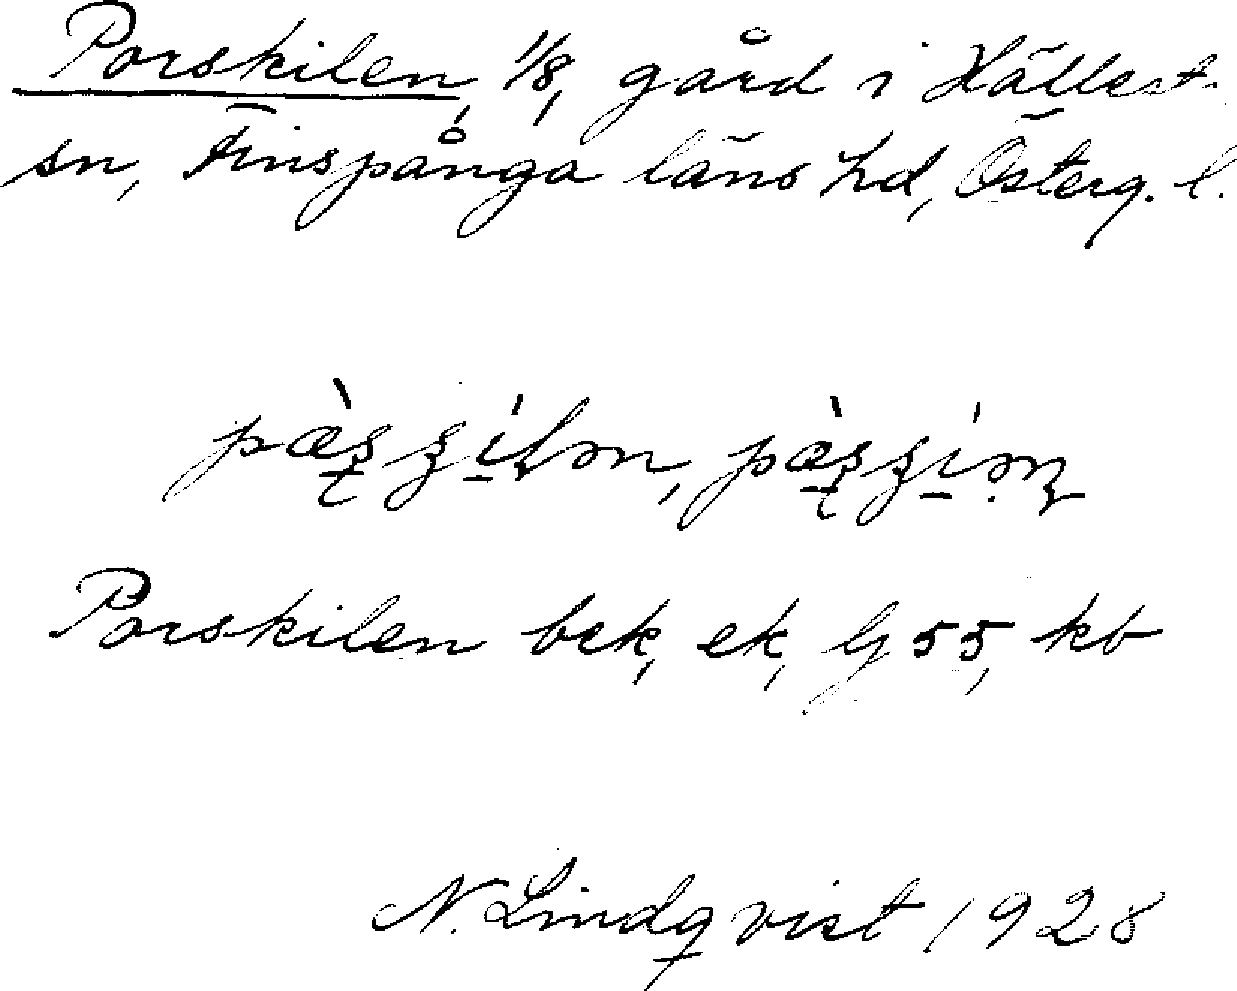 Porskilen, 1/8, gård i Hällest.
sn, Finspånga läns hd, Österg. l.
Porskilen bek, ek, G 55, kb
N. Lindqvist 1928